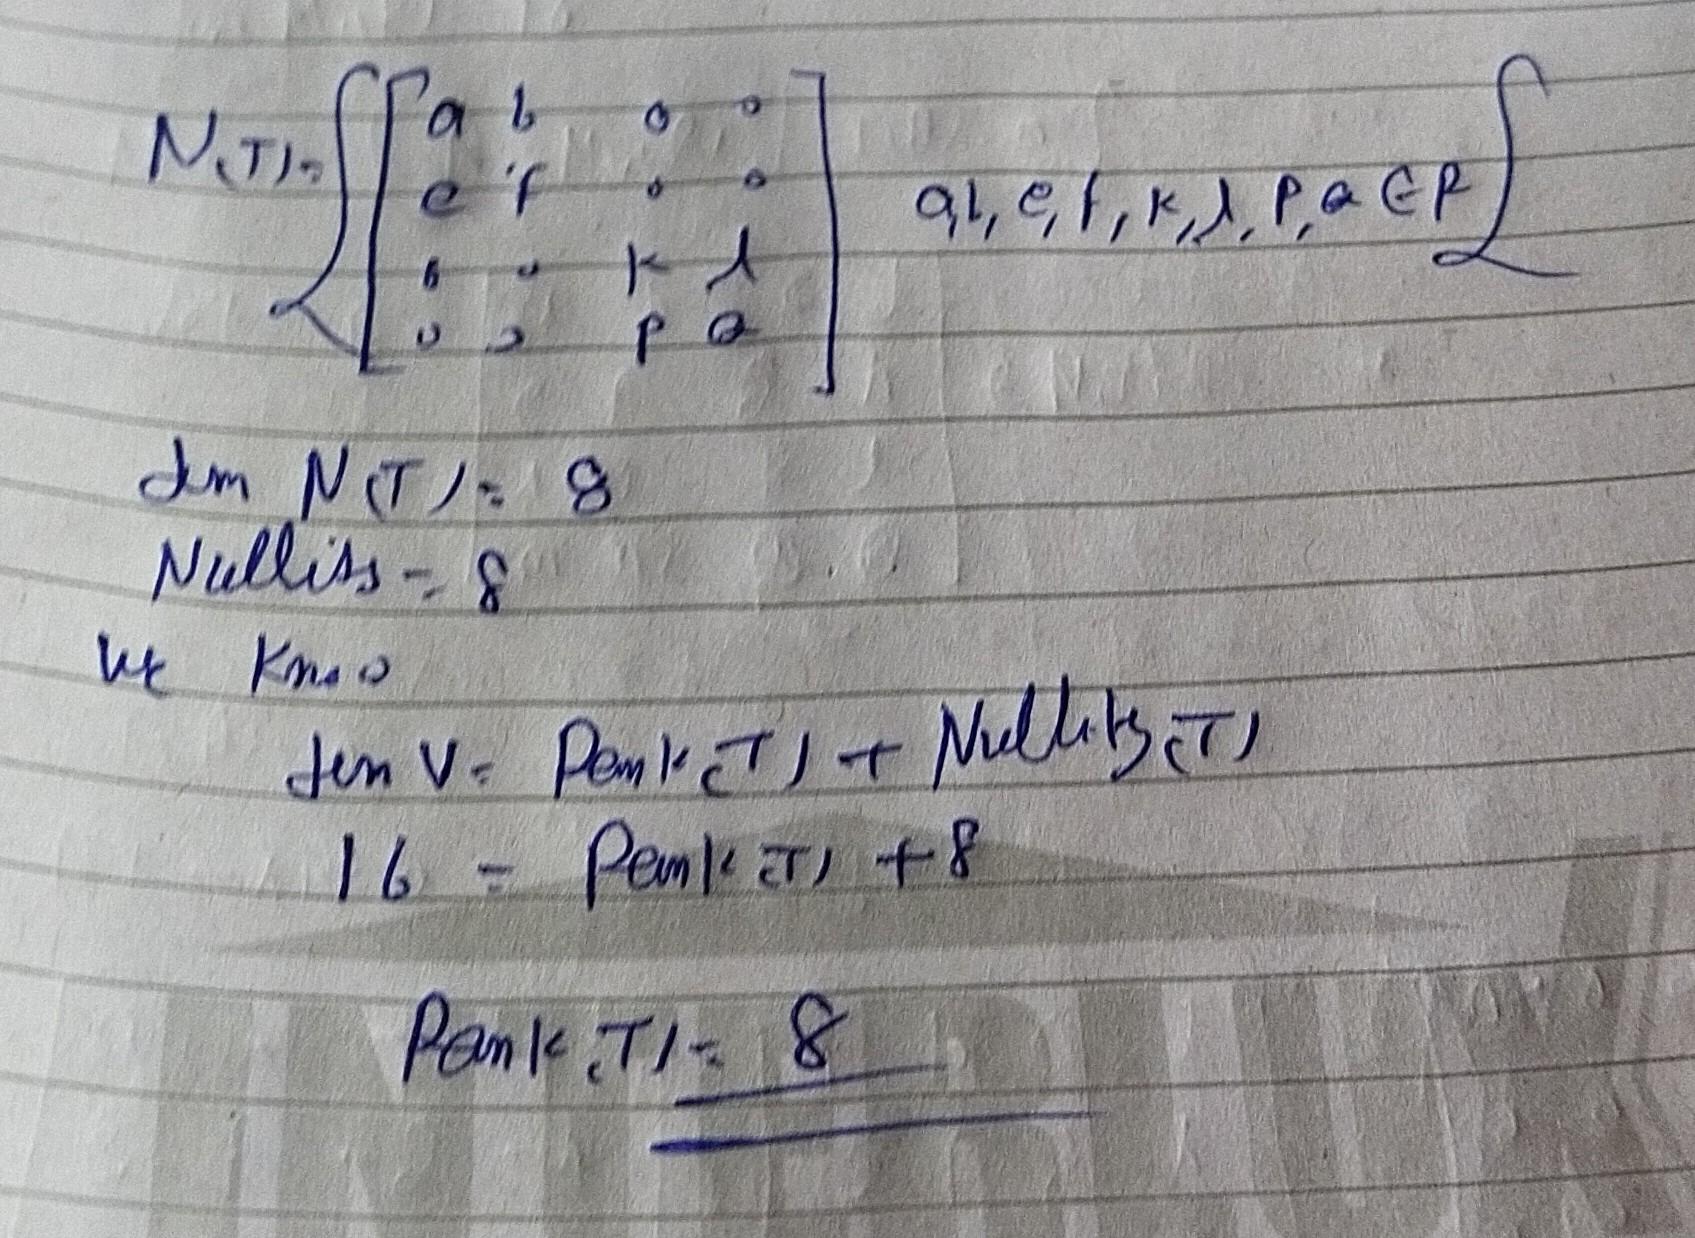 N(T) = { [ a b 0 0
e f 0 0
0 0 k l
0 0 p q ] a, b, e, f, k, l, p, q ∈ R }
dim N(T) = 8
Nullity = 8
We Know
dim V = Rank(T) + Nullity(T)
16 = Rank(T) + 8
Rank(T) = 8